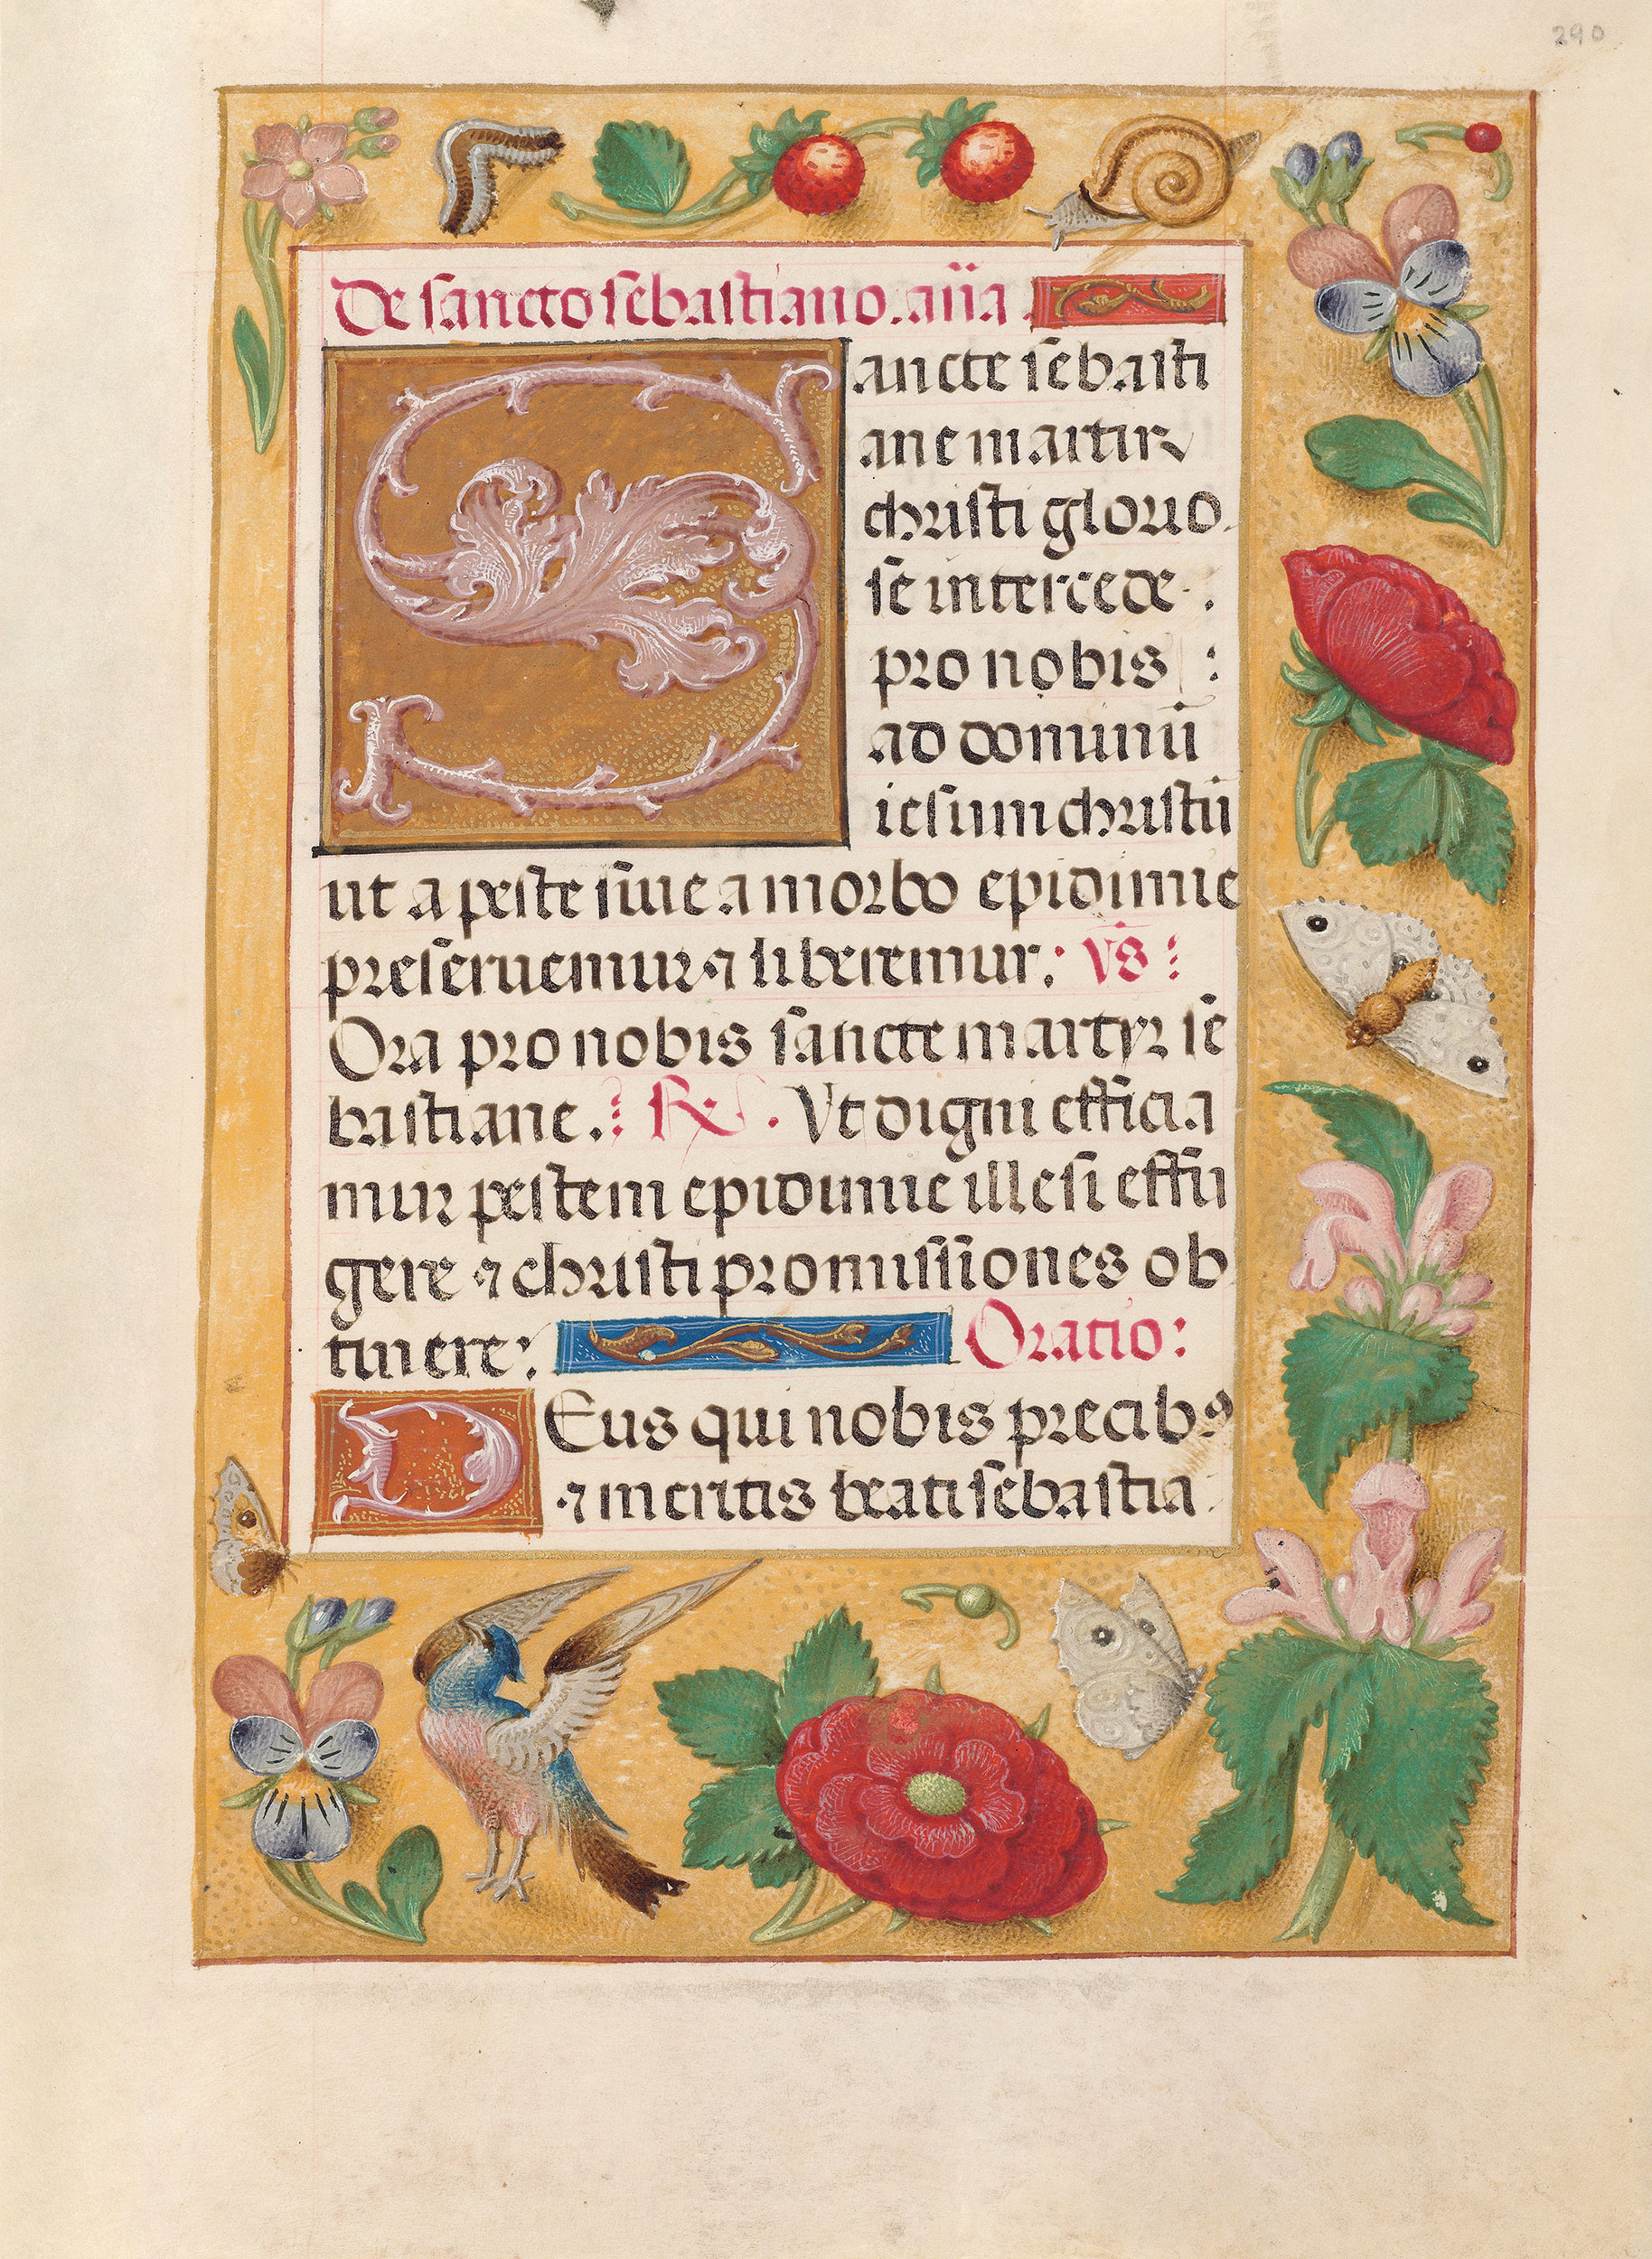 290
De sancto sebastiano. an̄a.
Sancte sebasti
ane martir
christi glorio
se intercede
pro nobis :
ad dominū
iesum christū
ut a peste siue a morbo epidimie
preseruemur ⁊ liberemur: vs̄ :
Ora pro nobis sancte martyr se
bastiane. : R̷ . Vt digni efficia
mur pestem epidimie illesi effu
gere ⁊ christi promissiones ob
tinere: Oratio:
DEus qui nobis precibꝰ
⁊ meritis beati sebastia